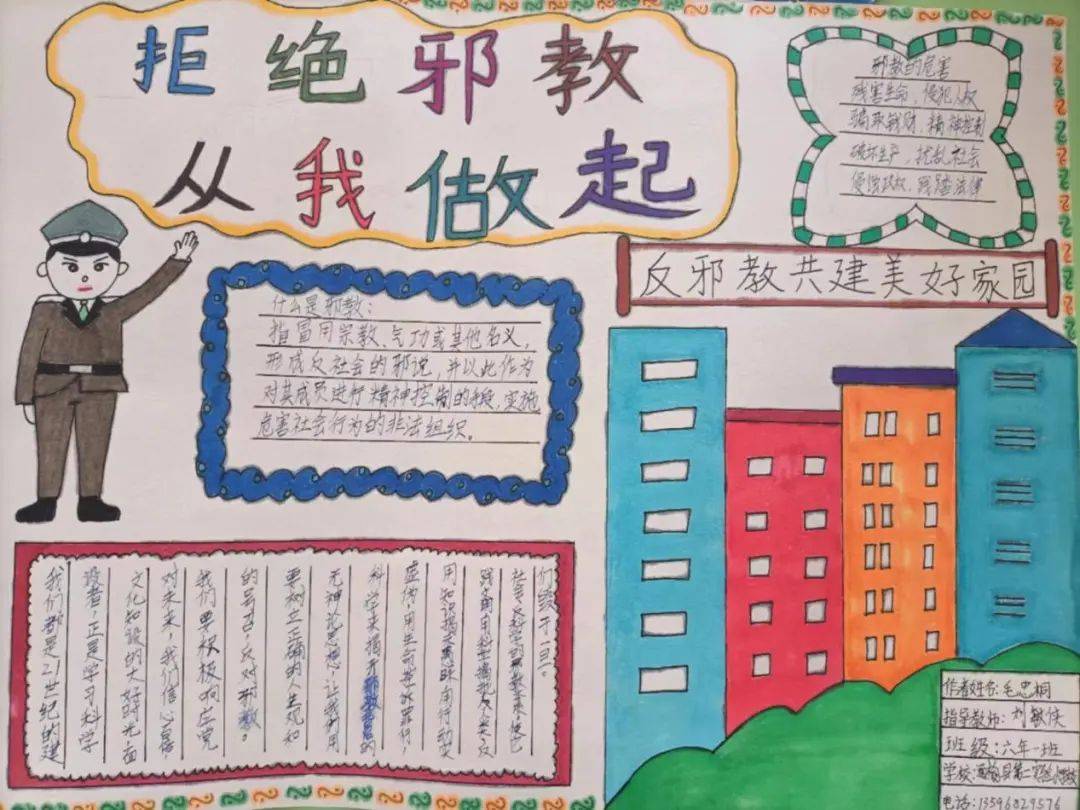 拒绝邪教
从我做起
邪教的危害
残害生命，侵犯人权
骗取钱财，精神控制
破坏生产，扰乱社会
侵蚀政权，践踏法律
反邪教共建美好家园
什么是邪教：
指冒用宗教、气功或其他名义，
形成反社会的邪说，并以此作为
对其成员进行精神控制的手段，实施
危害社会行为的非法组织。
我们都是21世纪的建
设者，正是学习科学
文化知设的大好时光面
对未来，我们信心百倍，
我们要积极响应党
的号召，反对邪教。
要树立正确的人生观和
无神论思想，让我们用
科学来揭开邪教者的
虚伪，用生命 罪行，
用知识揭穿愚昧，用行动实
用科学揭批反人类、反
社会、反科学的
们毁于一旦。
作者姓名：毛忠桐
指导教师：刘敏侠
班级：六年一班
学校： 县第二
电话：13596829576